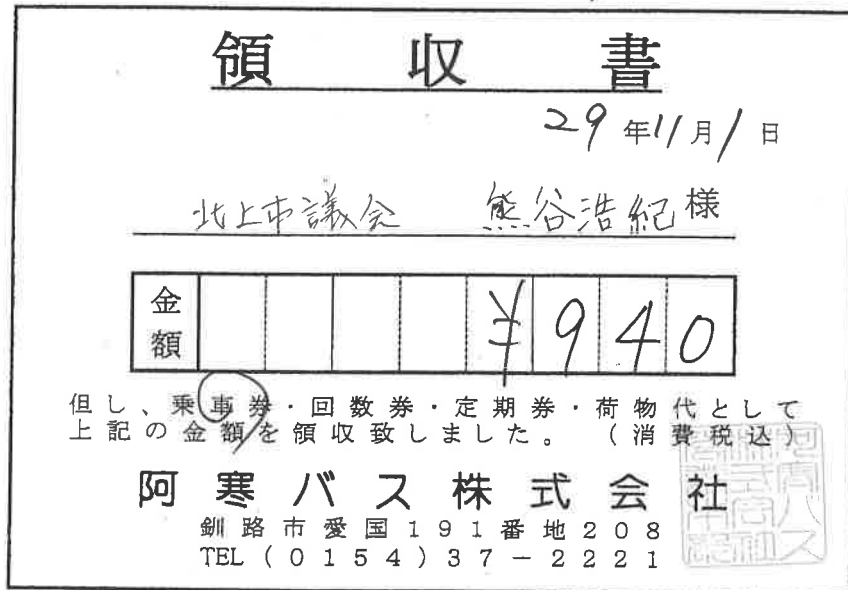 領収書
29年11月1日
北上市議会 熊谷浩紀様
金額 ¥940
但し、乗車券・回数券・定期券・荷物代として
上記の金額を領収致しました。（消費税込）
阿寒バス株式会社
釧路市愛国191番地208
TEL（0154）37－2221